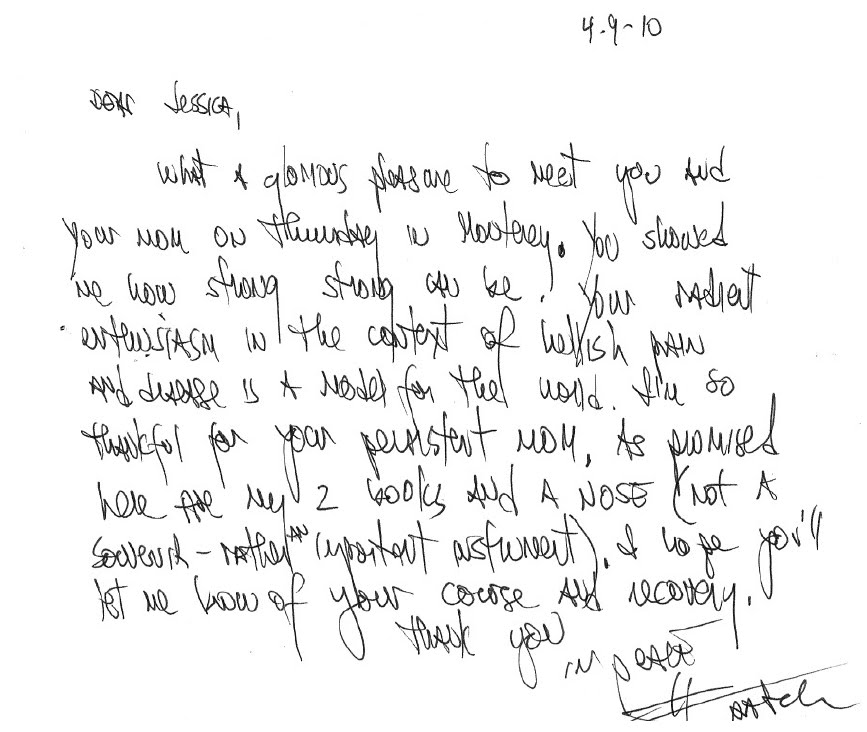 4-9-10
Dear Jessica,
What a glorious pleasure to meet you and
your mom on Thursday in Monterey. You showed
me how strong strong can be. Your radient
enthusiasm in the context of hellish pain
and disease is a model for the world. I'm so
thankful for your persistent mom. As promised
here are my 2 books and a NOSE (not a
souvenir - rather an important instrument). I hope you'll
let me know of your course and recovery.
Thank you
in peace
Patch